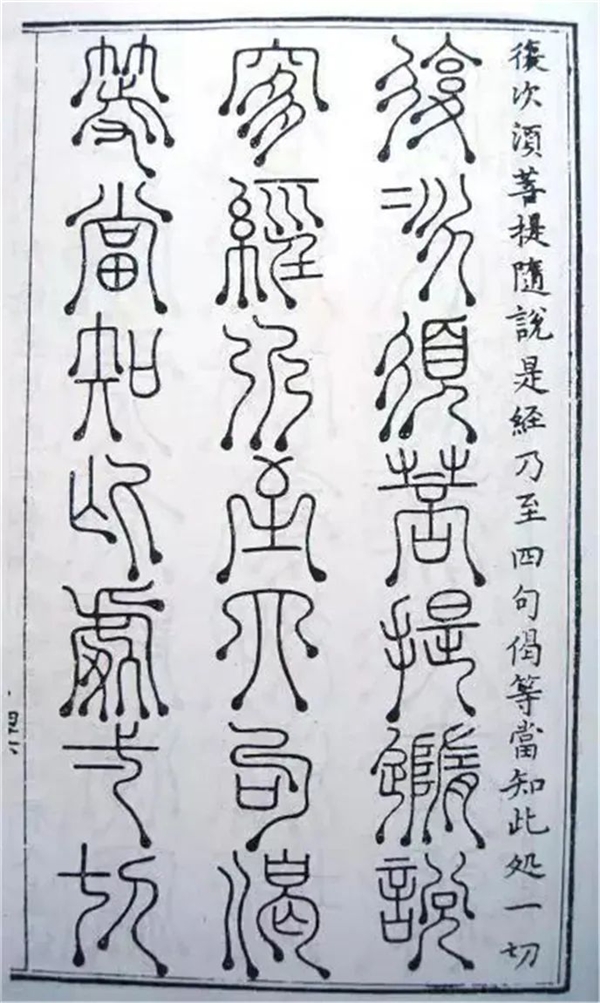 復次須菩提隨說是経乃至四句偈等當知此処一切
復次須菩提隨說
是經乃至四句偈
等當知此處一切